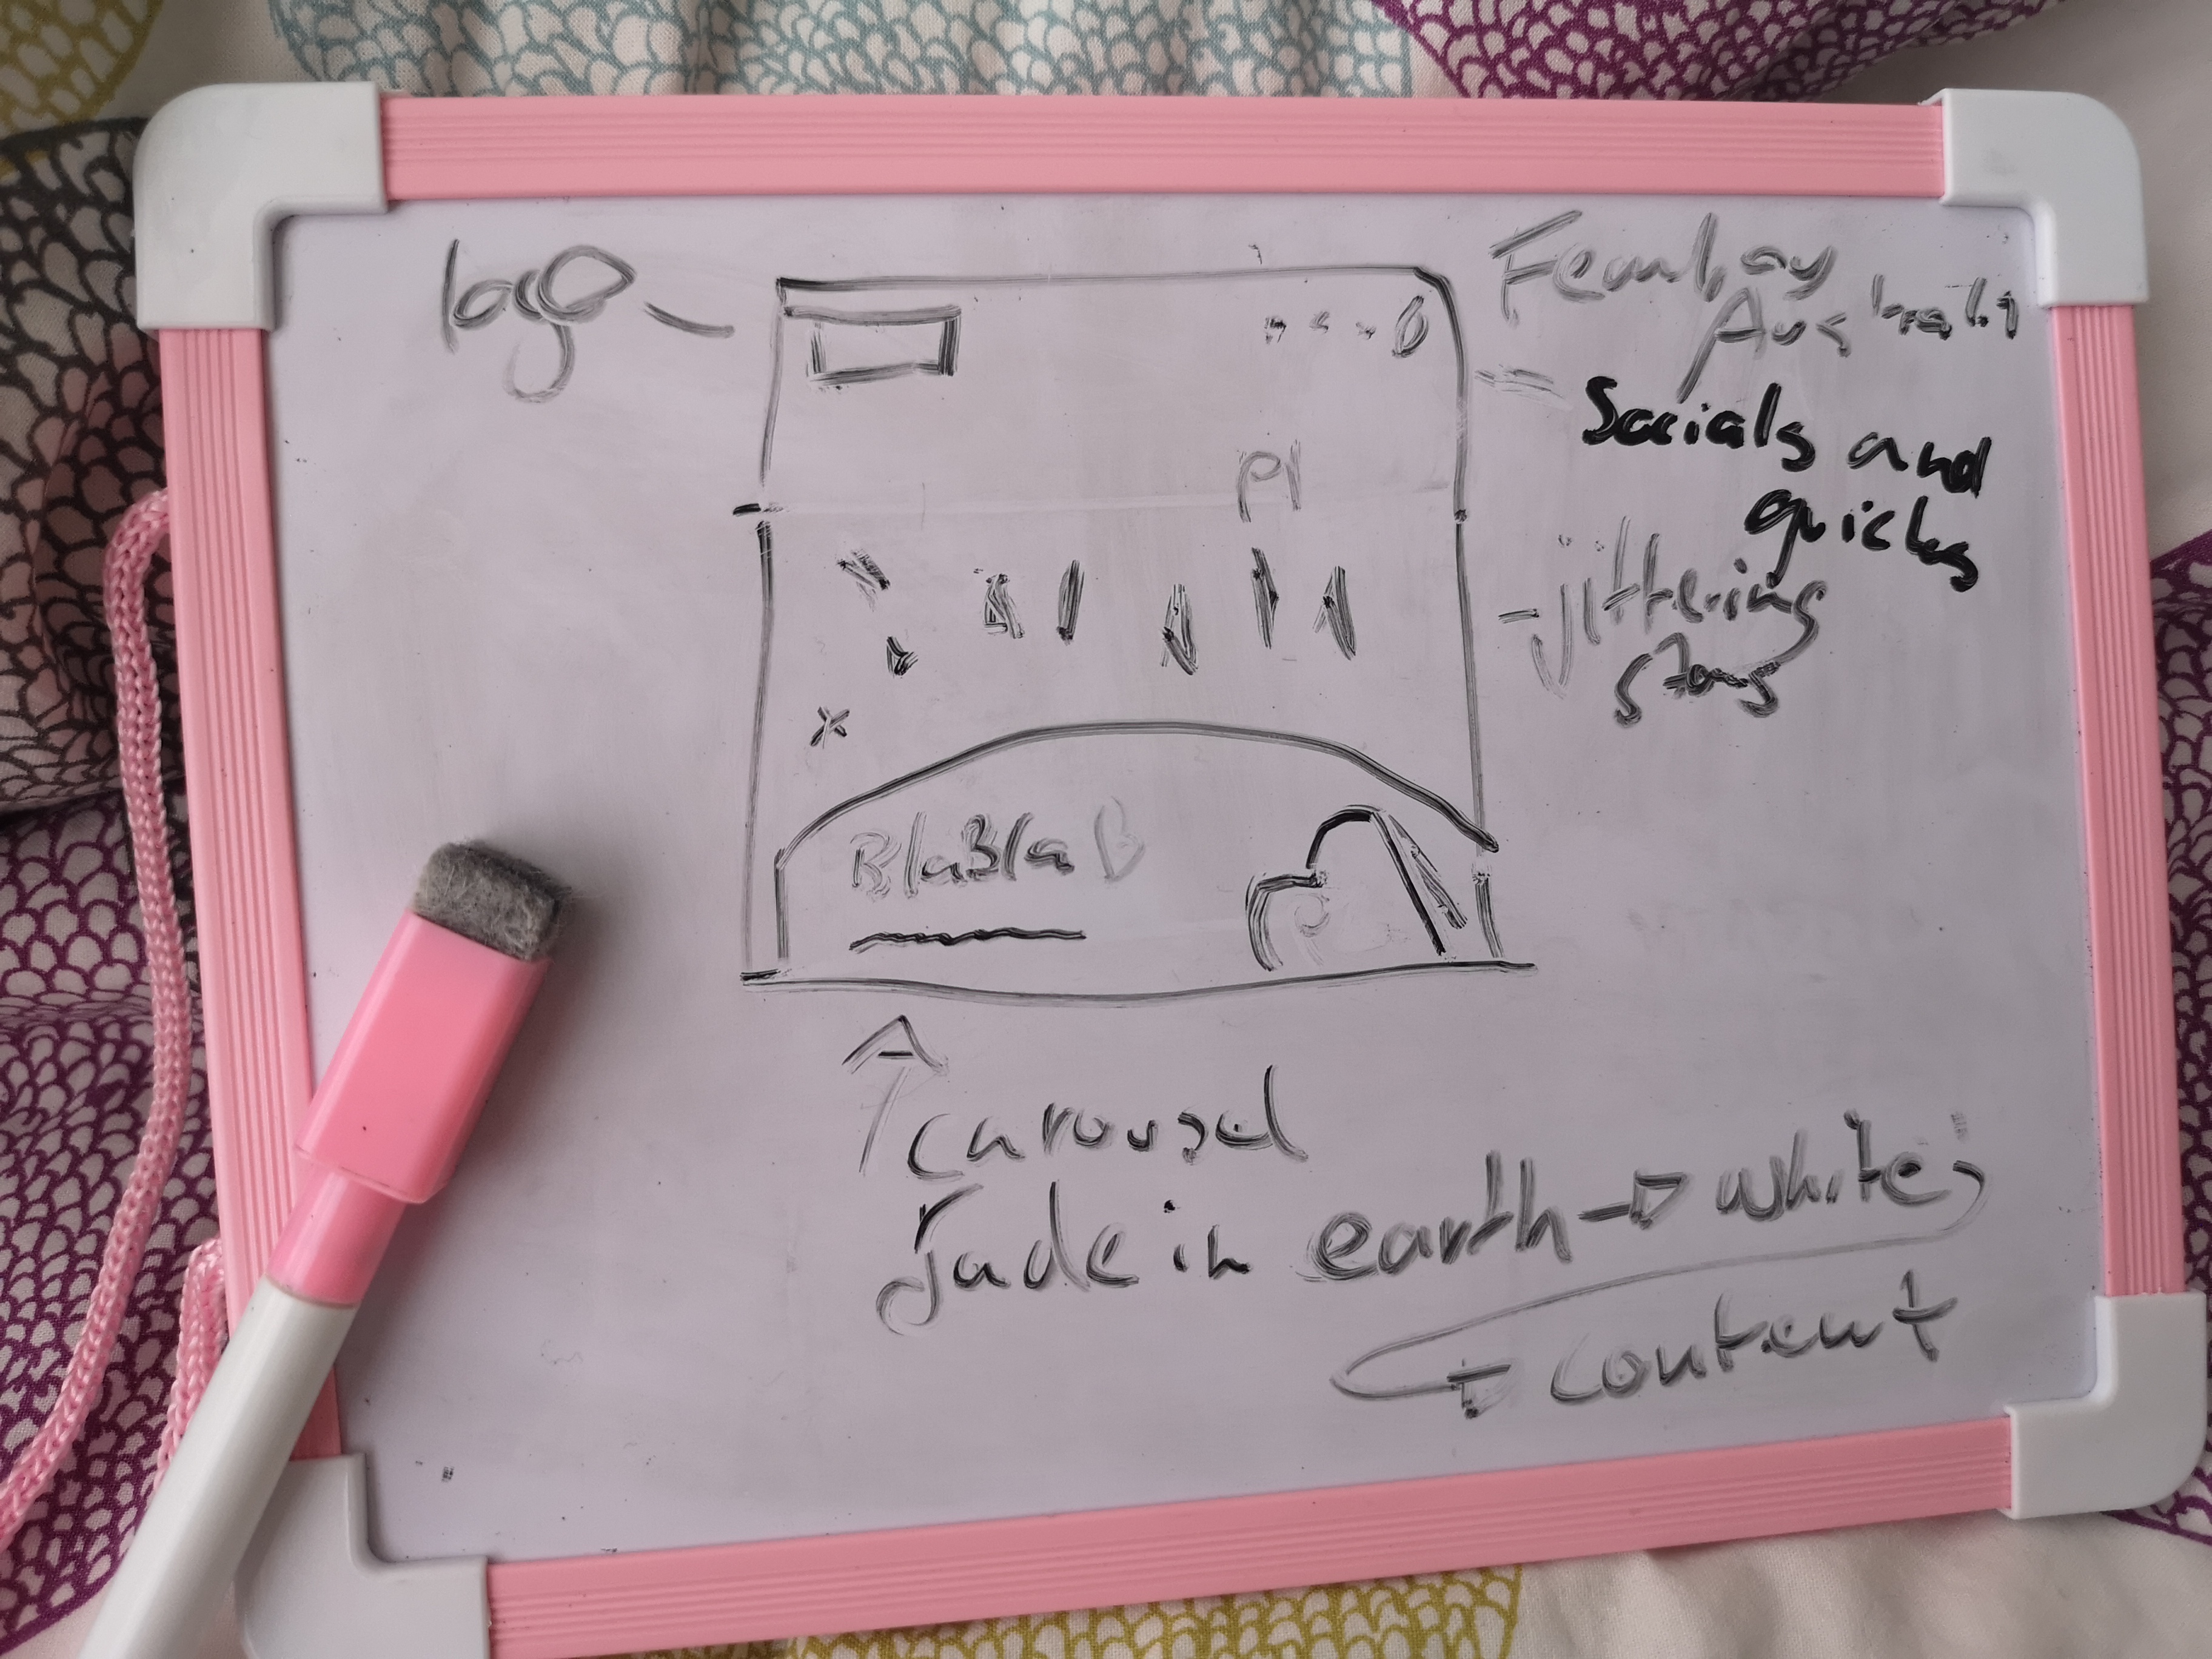 logo
Socials and
quicks
jittering
stars
BlaBla B
carousel
fade in earth → white,
+ content